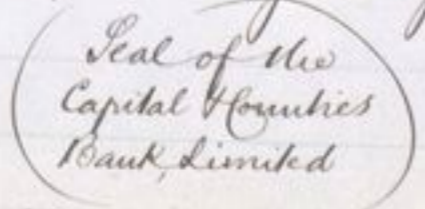 Seal of the
Capital & Counties
Bank, Limited